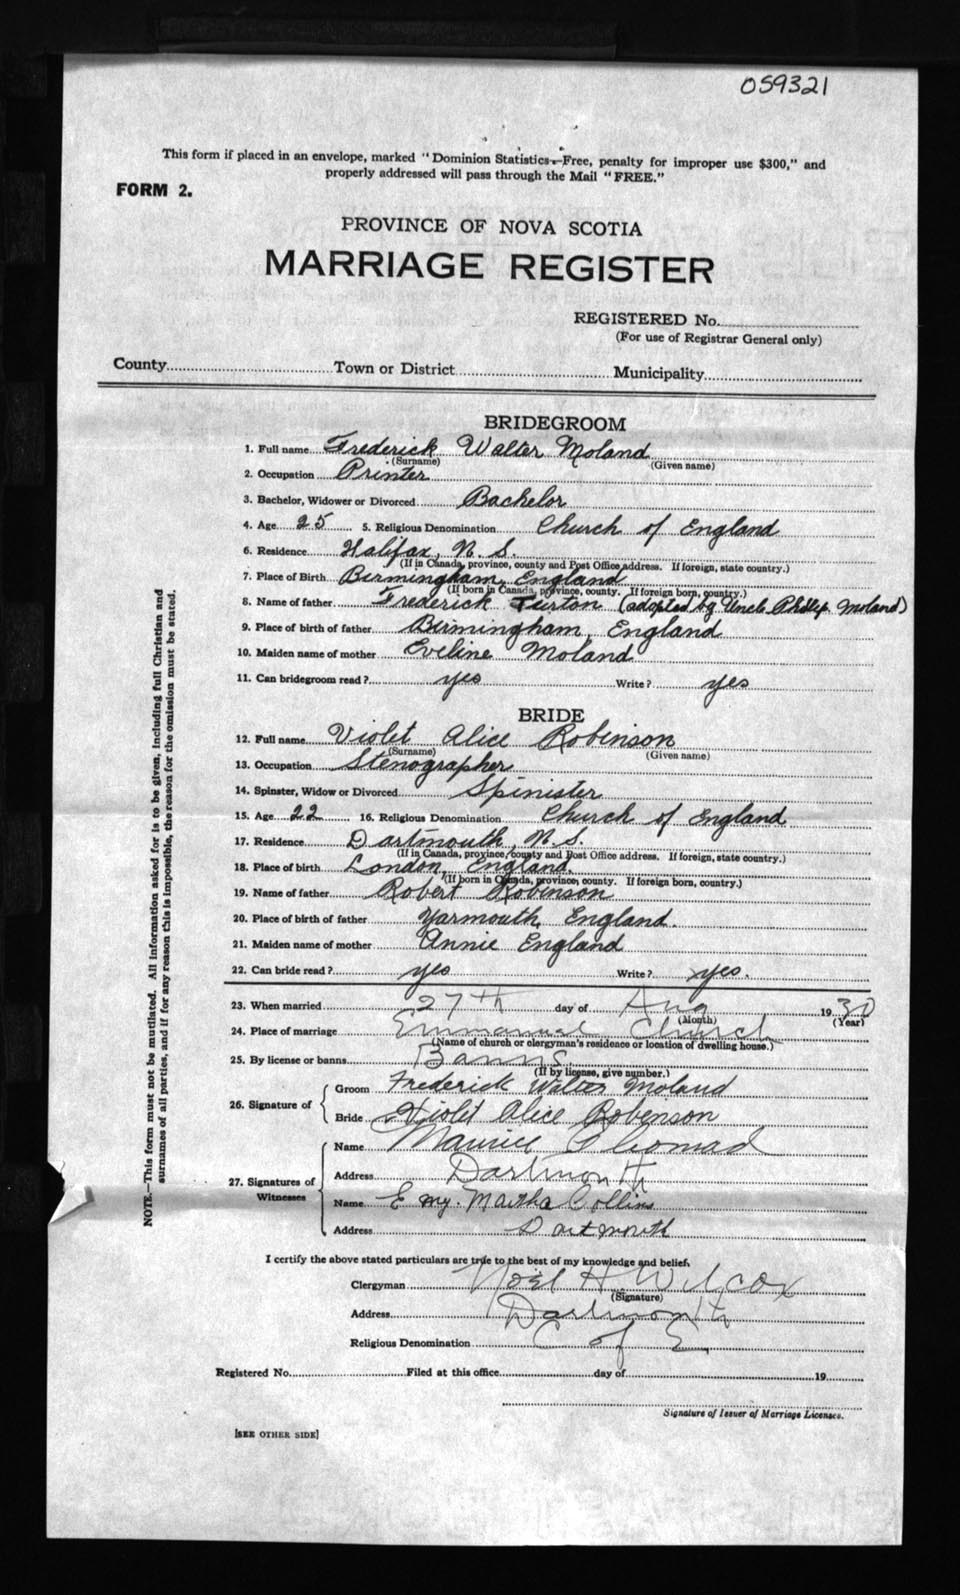 059321
This form if placed in an envelope, marked "Dominion Statistics—Free, penalty for improper use $300," and
properly addressed will pass through the Mail "FREE."
FORM 2.
PROVINCE OF NOVA SCOTIA
MARRIAGE REGISTER
REGISTERED No.
(For use of Registrar General only)
County Town or District Municipality
BRIDEGROOM
1. Full name Frederick Walter Moland
(Surname) (Given name)
2. Occupation Printer
3. Bachelor, Widower or Divorced Bachelor
4. Age 25 5. Religious Denomination Church of England
6. Residence Halifax, N. S.
(If in Canada, province, county and Post Office address. If foreign, state country.)
7. Place of Birth Birmingham, England
(If born in Canada, province, county. If foreign born, country.)
8. Name of father Frederick Turton (adopted by Uncle Phillip Moland)
9. Place of birth of father Birmingham, England
10. Maiden name of mother Eveline Moland
11. Can bridegroom read? yes Write? yes
BRIDE
12. Full name Violet Alice Robinson
(Surname) (Given name)
13. Occupation Stenographer
14. Spinster, Widow or Divorced Spinister
15. Age 22 16. Religious Denomination Church of England
17. Residence Dartmouth, N. S.
(If in Canada, province, county and Post Office address. If foreign, state country.)
18. Place of birth London, England.
(If born in Canada, province, county. If foreign born, country.)
19. Name of father Robert Robinson
20. Place of birth of father Yarmouth, England.
21. Maiden name of mother Annie England
22. Can bride read? yes Write? yes.
23. When married 27th day of Aug 1930
(Month) (Year)
24. Place of marriage Emmanuel Church
(Name of church or clergyman's residence or location of dwelling house.)
25. By license or banns Banns
(If by license, give number.)
26. Signature of
Groom Frederick Walter Moland
Bride Violet Alice Robinson
27. Signatures of Witnesses
Name Maurice
Address Dartmouth
Name Martha Collins
Address Dartmouth
I certify the above stated particulars are true to the best of my knowledge and belief,
Clergyman Noel H Wilcox
(Signature)
Address Dartmouth
Religious Denomination C of E
Registered No. Filed at this office day of 19
Signature of Issuer of Marriage Licenses.
[SEE OTHER SIDE]
NOTE.—This form must not be mutilated. All information asked for is to be given, including full Christian and
surnames of all parties, and if for any reason this is impossible, the reason for the omission must be stated.